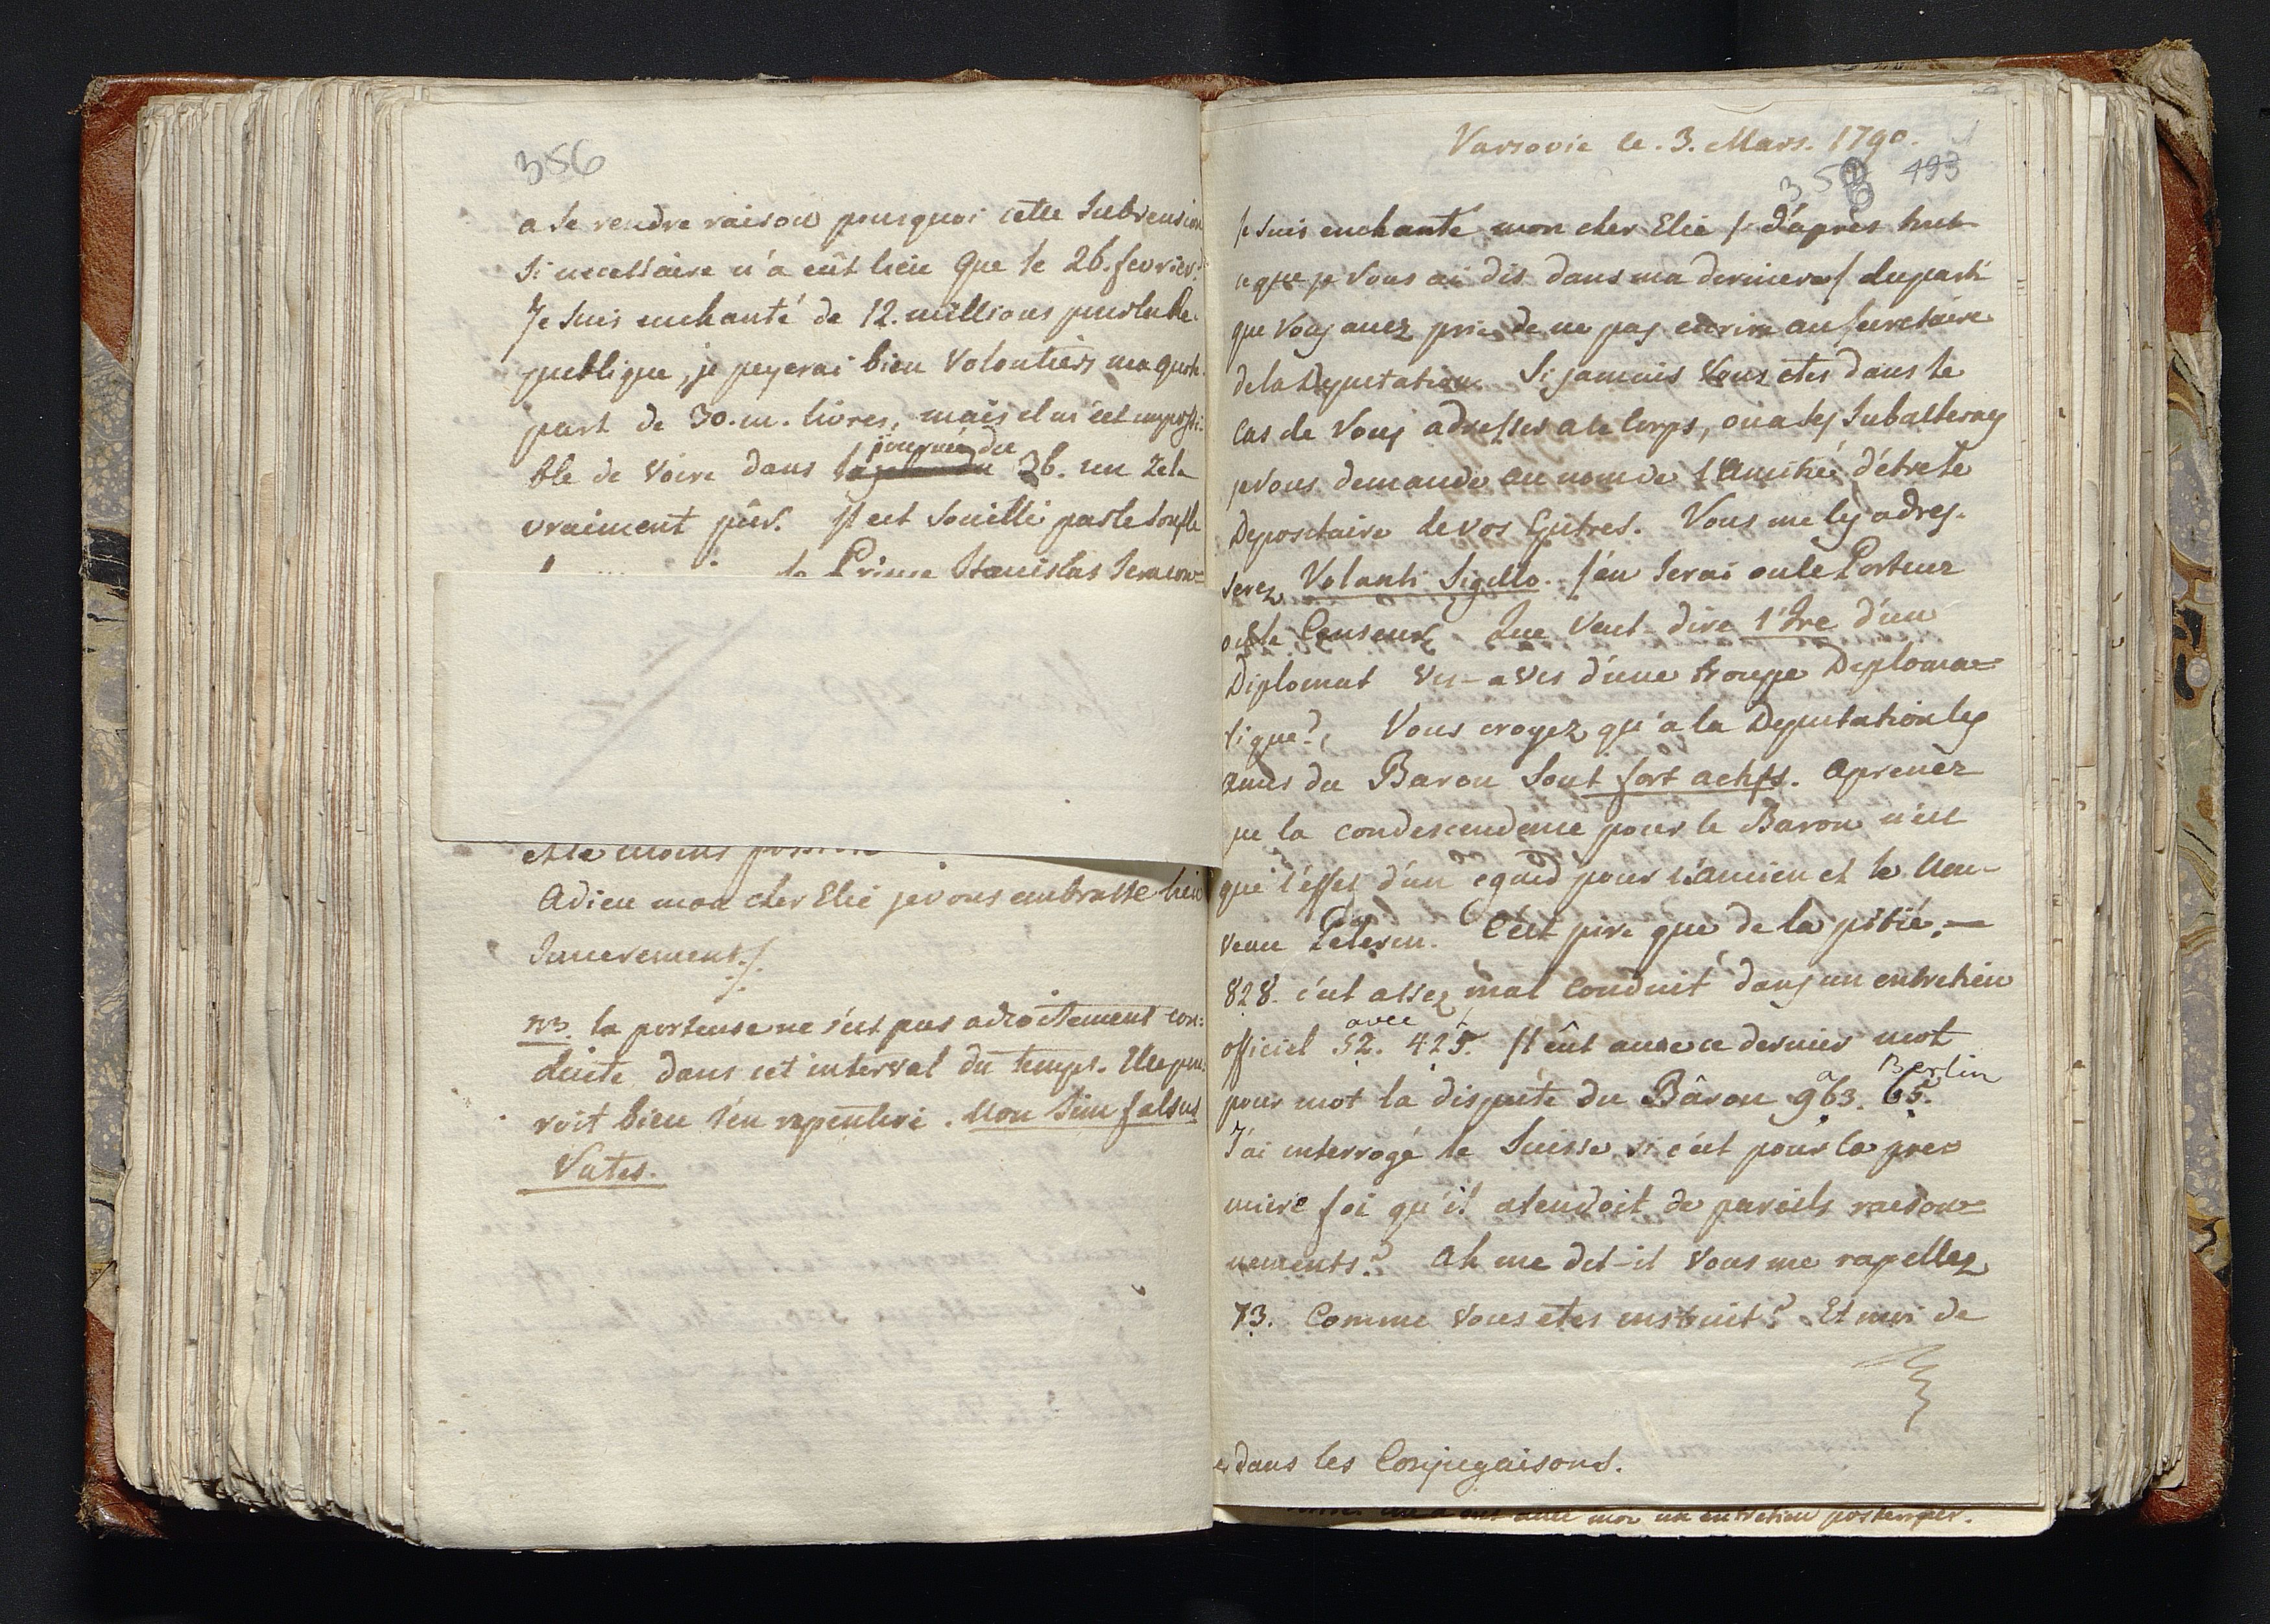 356
a se rendre raison pourquoi cette Subvension
si necessaire n'a eût lieu que le 26. fevrier?
Je suis enchanté de 12. millions pour la Re-
publique, je peyerai bien volontiers ma quote-
part de 30. m. livres, mais il m'est impossi-
journée du
ble de voire dans 26. un zele
vraiment pûr. Il est souillé par le soufle
le Prince Stanislas
et le moins
Adieu mon cher Elie je vous embrasse bien
sincerement./.
NB. la porteuse ne s'est pas adroitement con-
duite dans cet interval du temps. Elle pou-
roit bien s'en repentire. Non sim falsus
Vates.
Varsovie le. 3. Mars. 1790.
358 493
Je suis enchanté mon cher Elie /: d'après tout
ce que je vous ai dis dans ma derniere / du parti
que vous avez pris de ne pas ecrire au secretaire
de la Deputation. Si jamais vous etes dans le
cas de vous adresser a ce Corps, ou a ses Subalternes
je vous demande au nom de l'Amitié d'être le
Depositaire de vos Epitres. Vous me les adres-
serez Volanti Sigillo. J'en serai ou le Porteur
ou le Censeur. Que veut dire l'Ire d'un
Diplomat vis-a vis d'une troupe Diploma-
tique? Vous croyez qu'a la Deputation les
amis du Baron sont fort actifs. Aprenez
que la condescendence pour le Baron n'est
que l'effet d'un egard pour l'Ancien et le Nou-
veau Pelerin. C'est pire que de la pitié. —
828. c'est assez mal conduit dans un entretien
avec
officiel 52. 425. Il eût avec ce dernier mot
a Berlin
pour mot la dispute du Bâron 963. 65.
J'ai interrogé le Suisse si c'est pour la pre-
miere foi qu'il atendoit de pareils raison-
nements? Ah me dit-il vous me rapellez
73. Comme vous etes instruit? Et moi de
dans les Conjugaisons.
moi un entretien